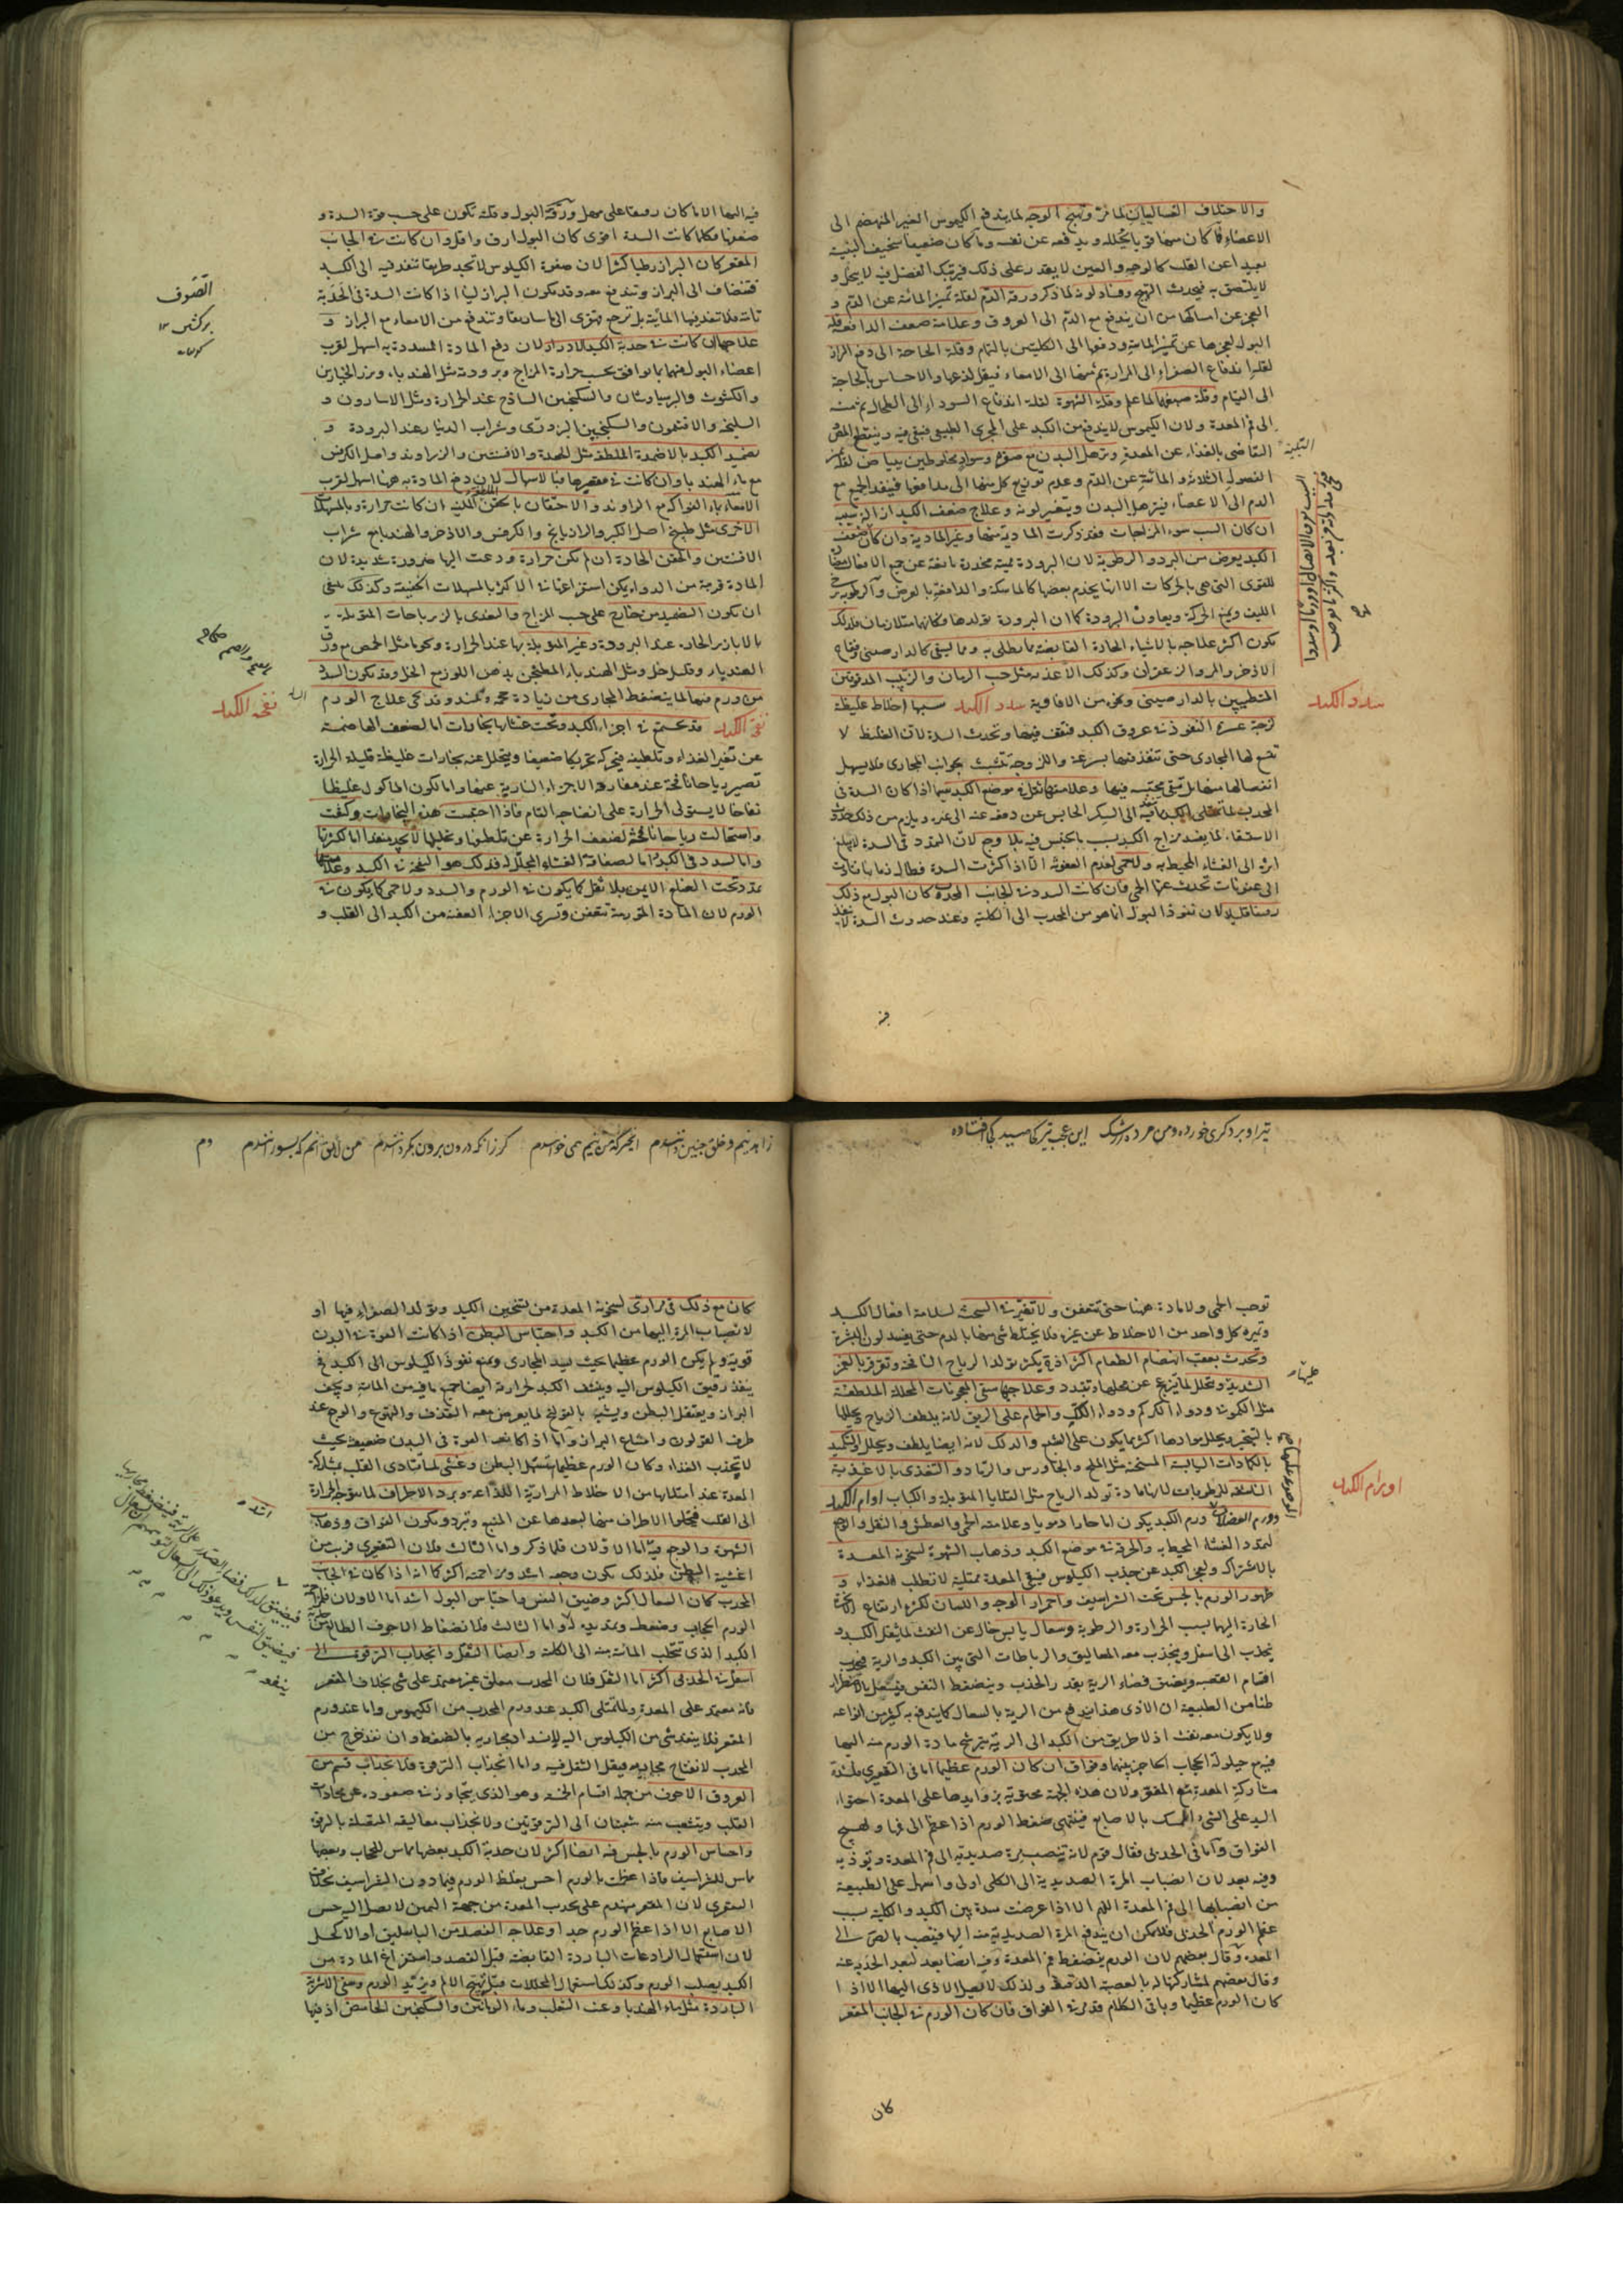 والاختلاف الغساليان لما مرّ وتهيج الوجه لما يندفع الكيموس الغير المنهضم الى
الاعضاء فما كان منها قويا يحلله ويدفعه عن نفسه وما كان ضعيفا سخيف البنية
بعيدا عن القلب كالوجه والعين لا يقدر على ذلك فيرتبك الفضل فيه لا يتحلل و
لا يلتصق به فيحدث التهيج وفساد لونه لما ذكر ورقة الدم لقلة تميز المائية عن الدم و
العجز عن امساكها من ان يندفع مع الدم الى العروق وعلامة ضعف الدافعة قلة
البول لعجزها عن تميز المائية ودفعها الى الكليتين بالتمام وقلة الحاجة الى دفع البراز
لقلة اندفاع الصفراء الى المرارة ثم منها الى الامعاء فيقل لذعها والاحساس بالحاجة
الى القيام وقلة صبغهما لما علم وقلة الشهوة لقلة اندفاع السوداء الى الطحال ثم منه
الى فم المعدة ولان الكيموس لا يندفع من الكبد على المجرى الطبيعي فيبقى فيه وينقطع المص
التقاضي بالغذاء عن المعدة وترهل البدن مع صفرة وسواد مخلوطين ببياض لقلة تميز
الفضول الثلاثة والمائية عن الدم وعدم توزيع كل منها الى مدافعها فينفذ الجميع مع
الدم الى الاعضاء فيترهل البدن ويتغير لونه وعلاج ضعف الكبد ازالة سببه
ان كان السبب سوء المزاجات فقد ذكرت المادية منها وغير المادية وان كان ضعف
الكبد يعرض من البرد والرطوبة لان البرودة مميتة مخدرة مانعة عن جميع الافعال
للقوى التي هي بالحركات الا انها يخدم بعضها كالماسكة والدافعة بالعرض والرطوبة
الليف ويمنع الحركة ويعاون البرودة كما ان البرودة تولدها فكانهما متلازمان فلذلك
يكون اكثر علاجه بالاشياء الحارة القابضة مما يطلى به ومما يسقى كالدارصيني وفقاح
الاذخر والمر والزعفران وكذلك الاغذية مثل حب الرمان والزبيب المدقوقين
المتطيبين بالدارصيني ونحوه من الافاوية سدد الكبد سببها اخلاط غليظة
لزجة عسرة النفوذ في عروق الكبد فتقف فيها وتحدث السدة لان الغليظ لا
تتسع لها المجارى حتى تنفذ فيها بسرعة واللزوجة تتشبث بجوانب المجارى فلا يسهل
انفصالها منها بل تبقى محتبسة فيها وعلامتها ثقل في موضع الكبد سيما اذا كان السدة في
المحدب لما تمتلى الكبد
الاستسقاء لما يفسد مزاج الكبد بسبب ما يحتبس فيه بلا وجع لان التمدد في السدة لا يبلغ
اثره الى الغشاء المحيط به ولا حمى لعدم العفونة الا اذا كثرت السدة وطال زمانها فادت
الى عفونات تحدث عنها الحمى فان كانت السدد في الجانب المحدب كان البول مع ذلك
رقيقا قليلا لان نفوذ البول انما هو من المحدب الى الكلية وعند حدوث السدة لا ينفذ
سدد الكبد
فيه
فيه اليها الا ما كان رقيقا على مهل ورقة البول وقلته تكون على حسب قوة السدة و
ضعفها فكلما كانت السدة اقوى كان البول ارق واقل وان كانت في الجانب
المقعر كان البراز رطبا كثيرا لان صفوة الكيلوس لا تجد طريقا تنفذ فيه الى الكبد
فتنضاف الى البراز وتندفع معه وقد يكون البراز لينا اذا كانت السدة في الحدبة
علاجها ان كانت في حدبة الكبد الادرار لان دفع المادة المسددة به اسهل لقرب
اعضاء البول منها بما يوافق بحسب حرارة المزاج وبرودته مثل الهندباء وبزر الخيارين
والكشوث والبرسياوشان والسكنجبين الساذج عند الحرارة ومثل الاسارون و
السليخة والافتيمون والسكنجبين البزوري وشراب الدينار عند البرودة و
تضميد الكبد بالاضمدة الملطفة مثل الحلبة والافسنتين والزراوند واصل الكرفس
مع ماء الهندبا وان كانت في مقعرها فبالاسهال لان دفع المادة به ههنا اسهل لقرب
الاخرى مثل طبيخ اصل الكبر والرازيانج والكرفس والاذخر والهندبا مع شراب
الافسنتين والحقن الحادة ان لم يكن حرارة ودعت اليها ضرورة شديدة لان
المادة قريبة من الدواء يمكن استفراغها في الاكثر بالمسهلات الخفيفة وكذلك ينبغي
ان يكون التضميد من خارج على حسب المزاج والتغذى بالزيرباجات المتوبلة
بالابازير الحارة عند البرودة وغير المتوبلة بها عند الحرارة ونحوها مثل الحمص مع ورق
الهندباء وقليل خل ومثل الهندباء المطجن بدهن اللوز مع الخل وقد يكون السدد
من ورم فيها لما ينضغط المجارى من زيادة حجمه وتمدده وقد يجئ علاج الورم
نفخ الكبد قد تحتبس في اجزاء الكبد وتحت غشائها بخارات اما لضعف الهاضمة
عن تغير الغذاء وتلطيفه فيحركه تحريكا ضعيفا ويتحلل عنه بخارات غليظة قليلة الحرارة
تصير رياحا نافخة عند مفارقة الاجزاء النارية عنها واما لكون الماكول غليظا
نفاخا لا يستولى الحرارة على انضاجه التام فاذا احتبست هذه البخارات وكثفت
واستحالت رياحا نافخة لضعف الحرارة عن تلطيفها وتحليلها لا تجد منفذا اما لكثرتها
واما لسدد في الكبد واما لصفاقة الغشاء المجلل له فذلك هو النفخة في الكبد وعلامتها
تمدد تحت الضلع الايمن بلا ثقل كما يكون في الورم والسدد ولا حمى كما يكون في
الورم لان المادة المتورمة تتعفن وتسرى الاجزاء العفنة من الكبد الى القلب و
نفخة الكبد
توجب الحمى ولا مادة ههنا حتى تتعفن ولا تغير في السحنة لسلامة افعال الكبد
وتميزه كل واحد من الاخلاط عن غيره فلا يختلط شئ منها بالدم حتى يفسد لون البشرة
وتحدث بعقب انهضام الطعام اكثر اذ ح يكثر تولد الرياح النافخة وتقرقر بالغمز
الشديد وتحلل لما ينزعج عن محلها وتتبدد وعلاجها سقى المعجونات المحللة الملطفة
مثل الكمونى ودواء الكركم ودواء اللك والحمام على الريق لانه يلطف الرياح ويحللها
بالكمادات اليابسة المسخنة مثل الملح والجاورس والرماد والتغذى بالاغذية
الناشفة للرطوبات لانها مادة تولد الرياح مثل القلايا المتوبلة والكباب اورام الكبد
ورم الكبد يكون اما حارا دمويا وعلامته الحمى والعطش والثقل والوجع
لتمدد الغشاء المحيط به والحرقة في موضع الكبد وذهاب الشهوة لسخونة المعدة
بالاشتراك ولعجز الكبد عن جذب الكيلوس فيبقى المعدة ممتلية لا تطلب الغذاء و
ظهور الورم بالجس تحت الشراسيف واحمرار الوجه واللسان لكثرة ارتفاع الابخرة
الحارة اليها بسبب الحرارة والرطوبة وسعال يابس خال عن النفث لما يثقل الكبد و
ينجذب الى اسفل وينجذب معه المعاليق والرباطات التي بين الكبد والرية فيجذب
اقسام القصبة ويضيق فضاء الرية بقدر الجذب وينضغط النفس فيسعل بالاضطرار
ظنا من الطبيعة ان الاذى هذا يندفع من الرية بالسعال كما يندفع به كثير من انواعه
ولا يكون معه نفث اذ لا طريق من الكبد الى الرية يترشح مادة الورم منه اليها
فيه مع حيلولة الحجاب الحاجز بينهما وفواق ان كان الورم عظيما اما في التقعيرى فلشدة
مشاركة المعدة مع المقعر ولان هذه الجهة محتوية بزوايدها على المعدة احتواء
اليد على الشئ الممسك بالاصابع فينتهى ضغط الورم اذا عظم الى فمها ويهيج
الفواق واما في الحدبى فقال قوم لانه تنصب مرة صديدية الى فم المعدة وتوذيه
وفيه بعد لان انصباب المرة الصديدية الى الكلى اولى واسهل على الطبيعة
من انصبابها الى فم المعدة اللهم الا اذا عرضت سدة بين الكبد والكلية بسبب
عظم الورم الحدبى فلا يمكن ان يندفع المرة الصديدية منه اليها فينصب بالضرورة الى
المعدة وقال بعضهم لان الورم يضغط فم المعدة وفيه ايضا بعد لبعد الحدبة عنه
وقال بعضهم لمشاركتها له بالعصبة الدقيقة ولذلك لا يصل الاذى اليها الا اذا
كان الورم عظيما وباقى الكلام قد مر في الفواق فان كان الورم في الجانب المقعر
اورام الكبد
كان
كان مع ذلك قئ مرارى لسخونة المعدة من تسخين الكبد وتولد الصفراء فيها او
لانصباب المرة اليها من الكبد واحتباس البطن اذا كانت القوة في البدن
قوية ولم يكن الورم عظيما بحيث يسد المجارى ويمنع نفوذ الكيلوس الى الكبد فح
ينفذ رقيق الكيلوس اليه وينشف الكبد لحرارته ايضا جميع ما فيه من المائية ويجف
البراز ويعتقل البطن ويشبه بالقولنج لما يعرض معه القذف والتهوع والوجع عند
طرف القولون وامتناع البراز واما اذا كانت القوة في البدن ضعيفة بحيث
لا يجذب الغذاء وكان الورم عظيما استسهل البطن وغشى لما يتادى القلب بمشاركة
المعدة عند امتلائها من الاخلاط المرارية اللذاعة وبرد الاطراف لما يتوجه الحرارة
الى القلب فتخلو الاطراف منها لبعدها عن المنبع وتبرد ويكون الفواق وذهاب
الشهوة والوجع فيه اما الاولان فلما ذكر واما الثالث فلان التقعيرى قريب من
اغشية البطن فلذلك يكون وجعه اشد ومزاحمته اكثر كما انه اذا كان في الجانب
المحدب كان السعال اكثر وضيق النفس واحتباس البول اشد اما الاولان فلمزاحمة
الورم الحجاب وضغطه وتمديده له واما الثالث فلانضغاط الاجوف الطالع من
الكبد الذى تتحلب المائية منه الى الكلية وايضا الثقل وانجذاب الترقوة الى
اسفل في الحدبى اكثر اما الثقل فلان المحدب معلق غير معتمد على شئ بخلاف المقعر
فانه معتمد على المعدة ولما تمتلى الكبد عند ورم المحدب من الكيموس واما عند ورم
المقعر فلا ينفذ شئ من الكيلوس اليه لانسداد مجاريه بالضغط وان نفذ خرج من
المحدب لانفتاح مجاريه فيقل الثقل فيه واما انجذاب الترقوة فلانجذاب قسم من
القلب ويتشعب منه شعبتان الى الترقوتين ولانجذاب معاليقه المتصلة بالترقوة
واحساس الورم بالجس فيه ايضا اكثر لان حدبة الكبد بعضها مماس للحجاب وبعضها
مماس للشراسيف فاذا عظمت بالورم احس بغلظ الورم فيما دون الشراسيف بخلاف
التقعيرى لان المقعر منهدم على محدب المعدة من جهة اليمين لا يصل اليه حس
الاصابع الا اذا عظم الورم جدا وعلاجه الفصد من الباسليق او الاكحل
لان استعمال الرادعات الباردة القابضة قبل الفصد واستفراغ المادة من
الكبد يصلب الورم وكذلك استعمال المحللات قبله يهيج الالم ويزيد الورم وسقى الاشربة
الباردة مثل ماء الهندبا وعنب الثعلب وماء الرمانين والسكنجبين الحامض اذ فيها